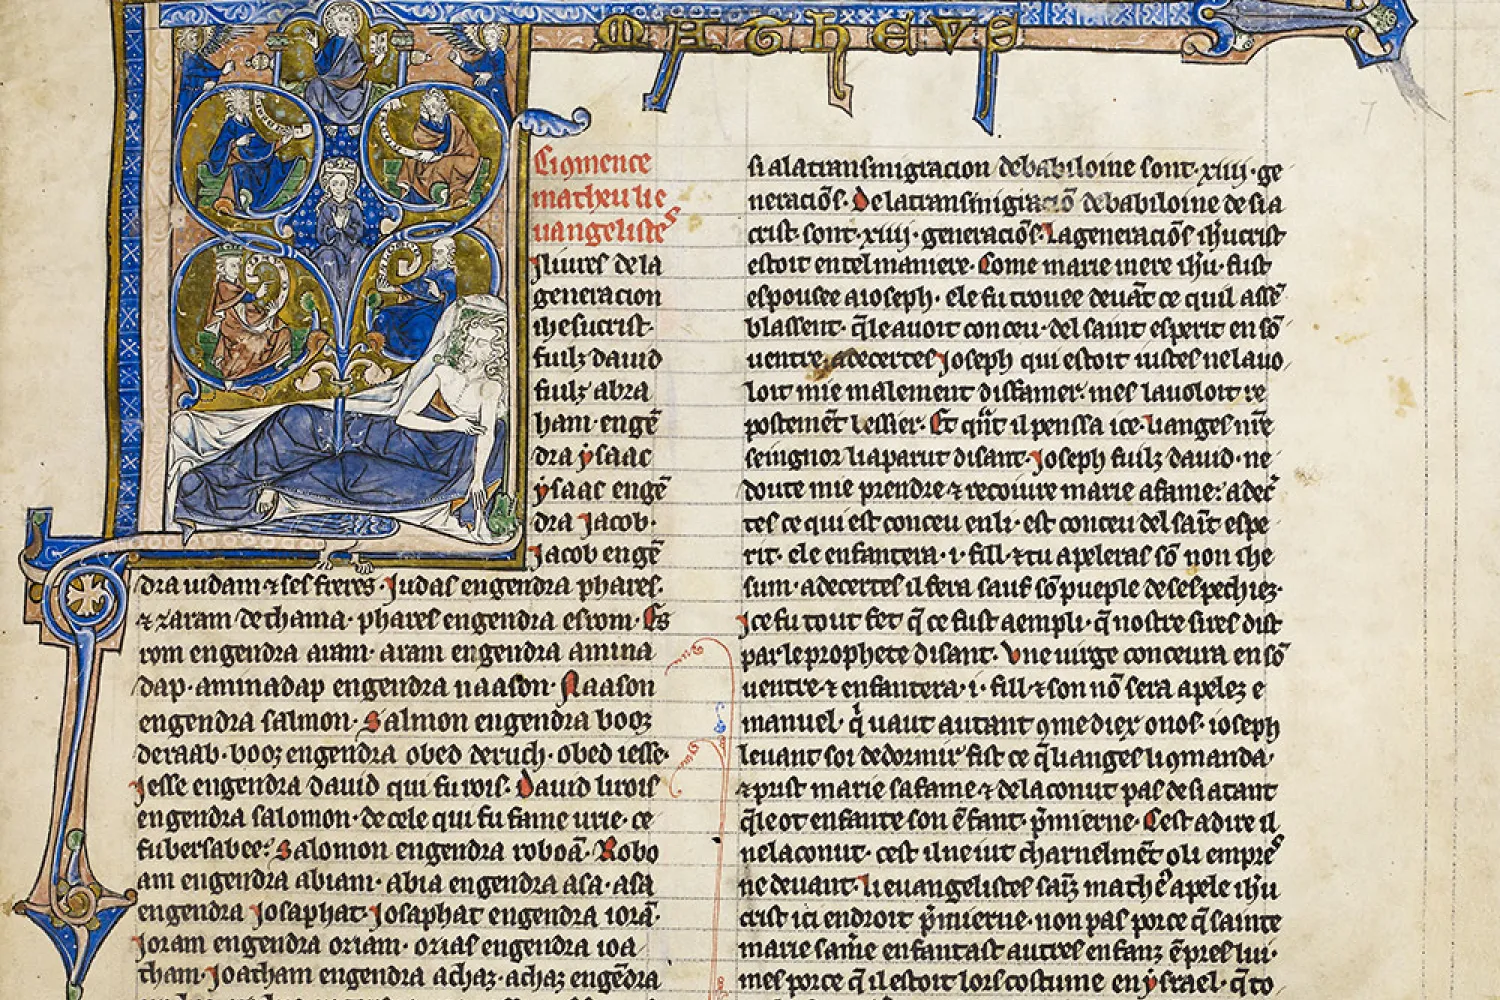 MATHEVS
Cṍmence
matheu lie
uangelistes
Jliures de la
generacion
ihesucrist·
fuilz dauid
fuilz abra
ham· engẽ
dra ẏsaac
ẏsaac engẽ
dra Jacob·
Jacob engẽ
dra iudam ⁊ ses freres· Judas engendra phares·
⁊ zaram de thama· phares engendra esrom· Es
rom engendra aram· aram engendra amina
dap· aminadap engendra naason· Naason
engendra salmon· Salmon engendra booz
de raab· booz engendra obed de ruth· obed iesse·
Jesse engendra dauid qui fu rois· Dauid li rois
engendra salomon· de cele qui fu fame urie· ce
fu bersabee· Salomon engendra roboã· Robo
am engendra abiam· abia engendra asa· asa
engendra Josaphat· Josaphat engendra iorã·
Joram engendra oziam· ozias engendra ioa
tham· Joatham engendra achaz· achaz engẽdra
si a la transmigracion de babiloine sont· xiiij· ge
neraciõs· De la transmigraciõ de babiloine desi a
crist· sont· xiiij· generaciõs· La generaciõs ih'ucrist
estoit en tel maniere· Come marie mere ih'u· fust
espousee a ioseph· ele fu trouee deuãt ce quil assẽ
blassent· q̃le auoit conceu· del saint esperit en sõ
uentre· adecertes Joseph qui estoit iustes ne la uo
loit mie malement diffamer· mes la uoloit re
postemẽt lessier· Et qñt il penssa ice· li anges nr̃e
seingnor li aparut disant· Joseph fuilz dauid· ne
doute mie prendre ⁊ recoiure marie a fame· adec̃
tes ce qui est conceu en li· est conceu del saĩt espe
rit· ele enfantera· i· fill· ⁊ tu apeleras sõ non ihe
sum· adecertes il fera sauf sõ pueple de ses pechiez·
Ice fu tout fet q̃ ce fust aempli· q̃ nostre sires dist
par le prophete disant· Vne uirge conceura en sõ
uentre· ⁊ enfantera· i· fill· ⁊ son nõ sera apelez e
manuel· q̃ uaut autant ꝯme diex o nos· ioseph
leuant soi de dormir fist ce q̃ li anges li ꝯmanda·
⁊ prist marie sa fame· ⁊ de la conut pas desi atant
q̃le ot enfante son ẽfant· p̃mierne· Cest a dire il
ne la conut· cest il ne iut charnelmẽt o li empres
ne deuant· li euangelistes saĩz mathe apele ih'u
crist ici endroit p̃mierne· non pas porce q̃ sainte
marie sam̃e enfantast autres enfanz ẽpres lui·
mes porce q̃ il estoit lors costume en ẏsrael· q̃ to